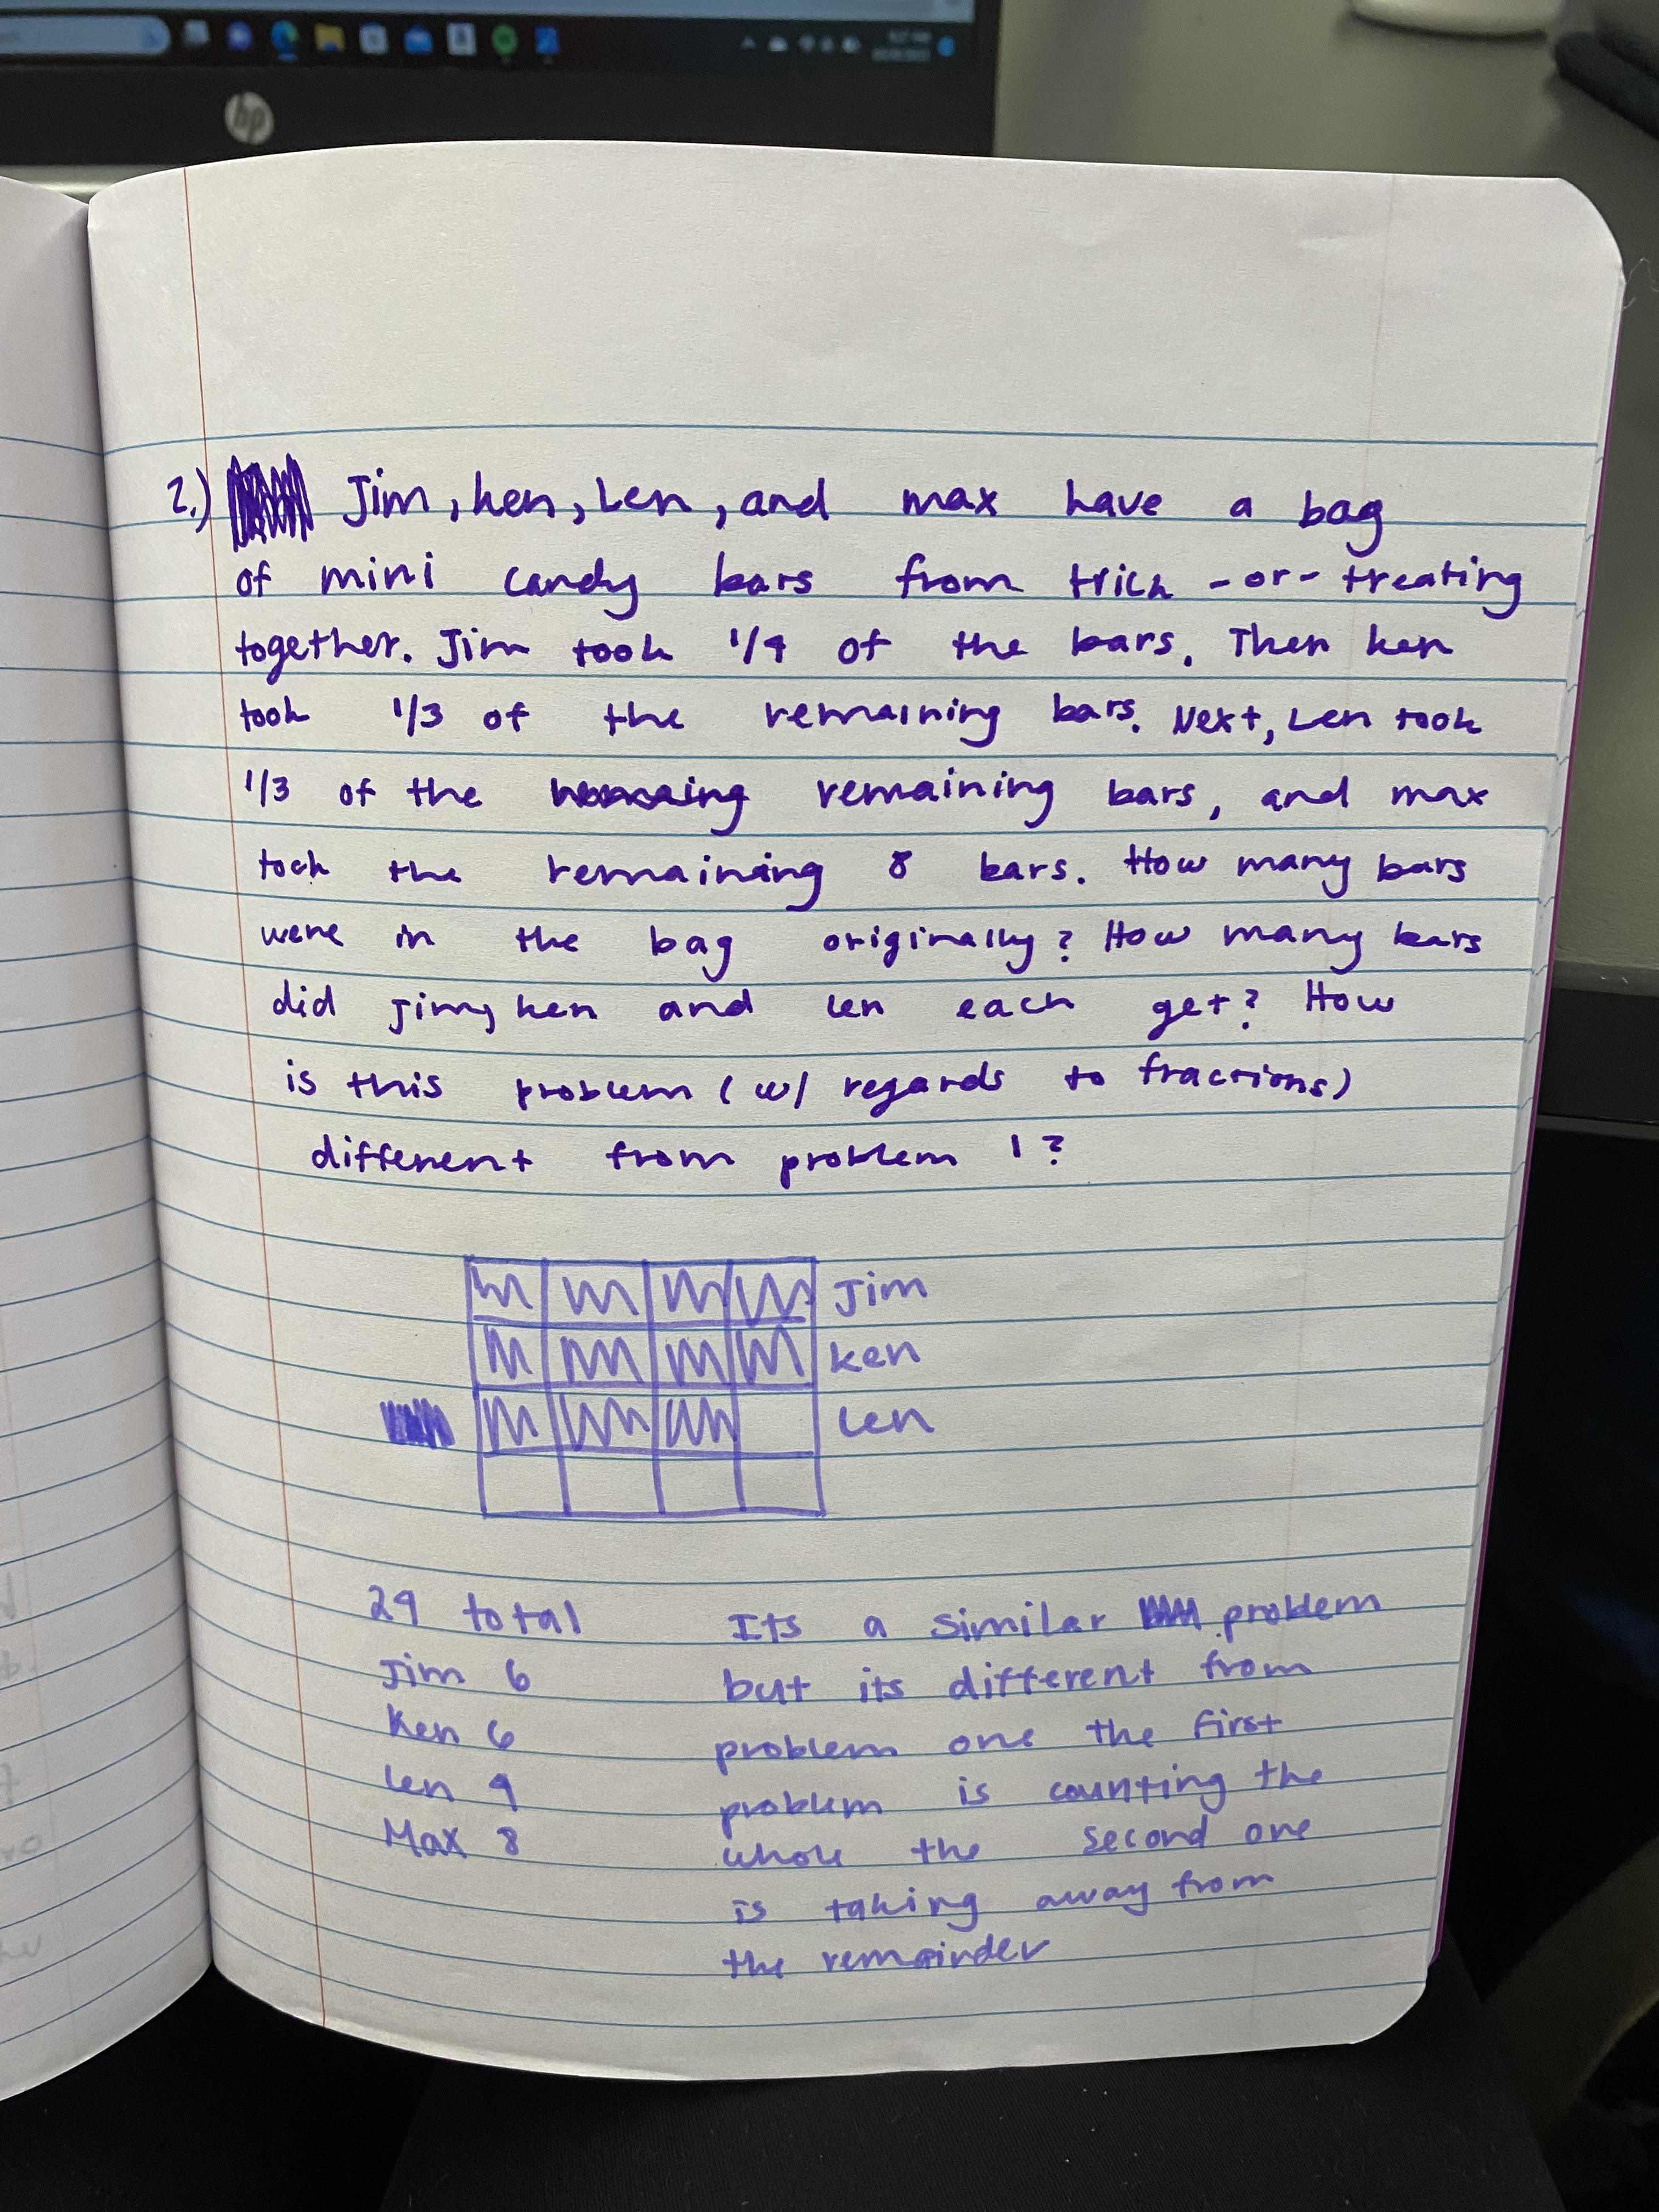 hp
2.) Jim, ken, Len, and max have a bag
of mini candy bars from trick-or-treating
together. Jim took 1/4 of the bars. Then ken
took 1/3 of the remaining bars. Next, Len took
1/3 of the remaining bars, and max
took the remaining 8 bars. How many bars
were in the bag originally? How many bars
did Jim, ken and Len each get? How
is this problem (w/ regards to fractions)
different from problem 1?
Jim
ken
Len
24 total
Jim 6
Ken 6
Len 4
Max 8
Its a similar problem
but its different from
problem one the first
problem is counting the
whole the second one
is taking away from
the remainder